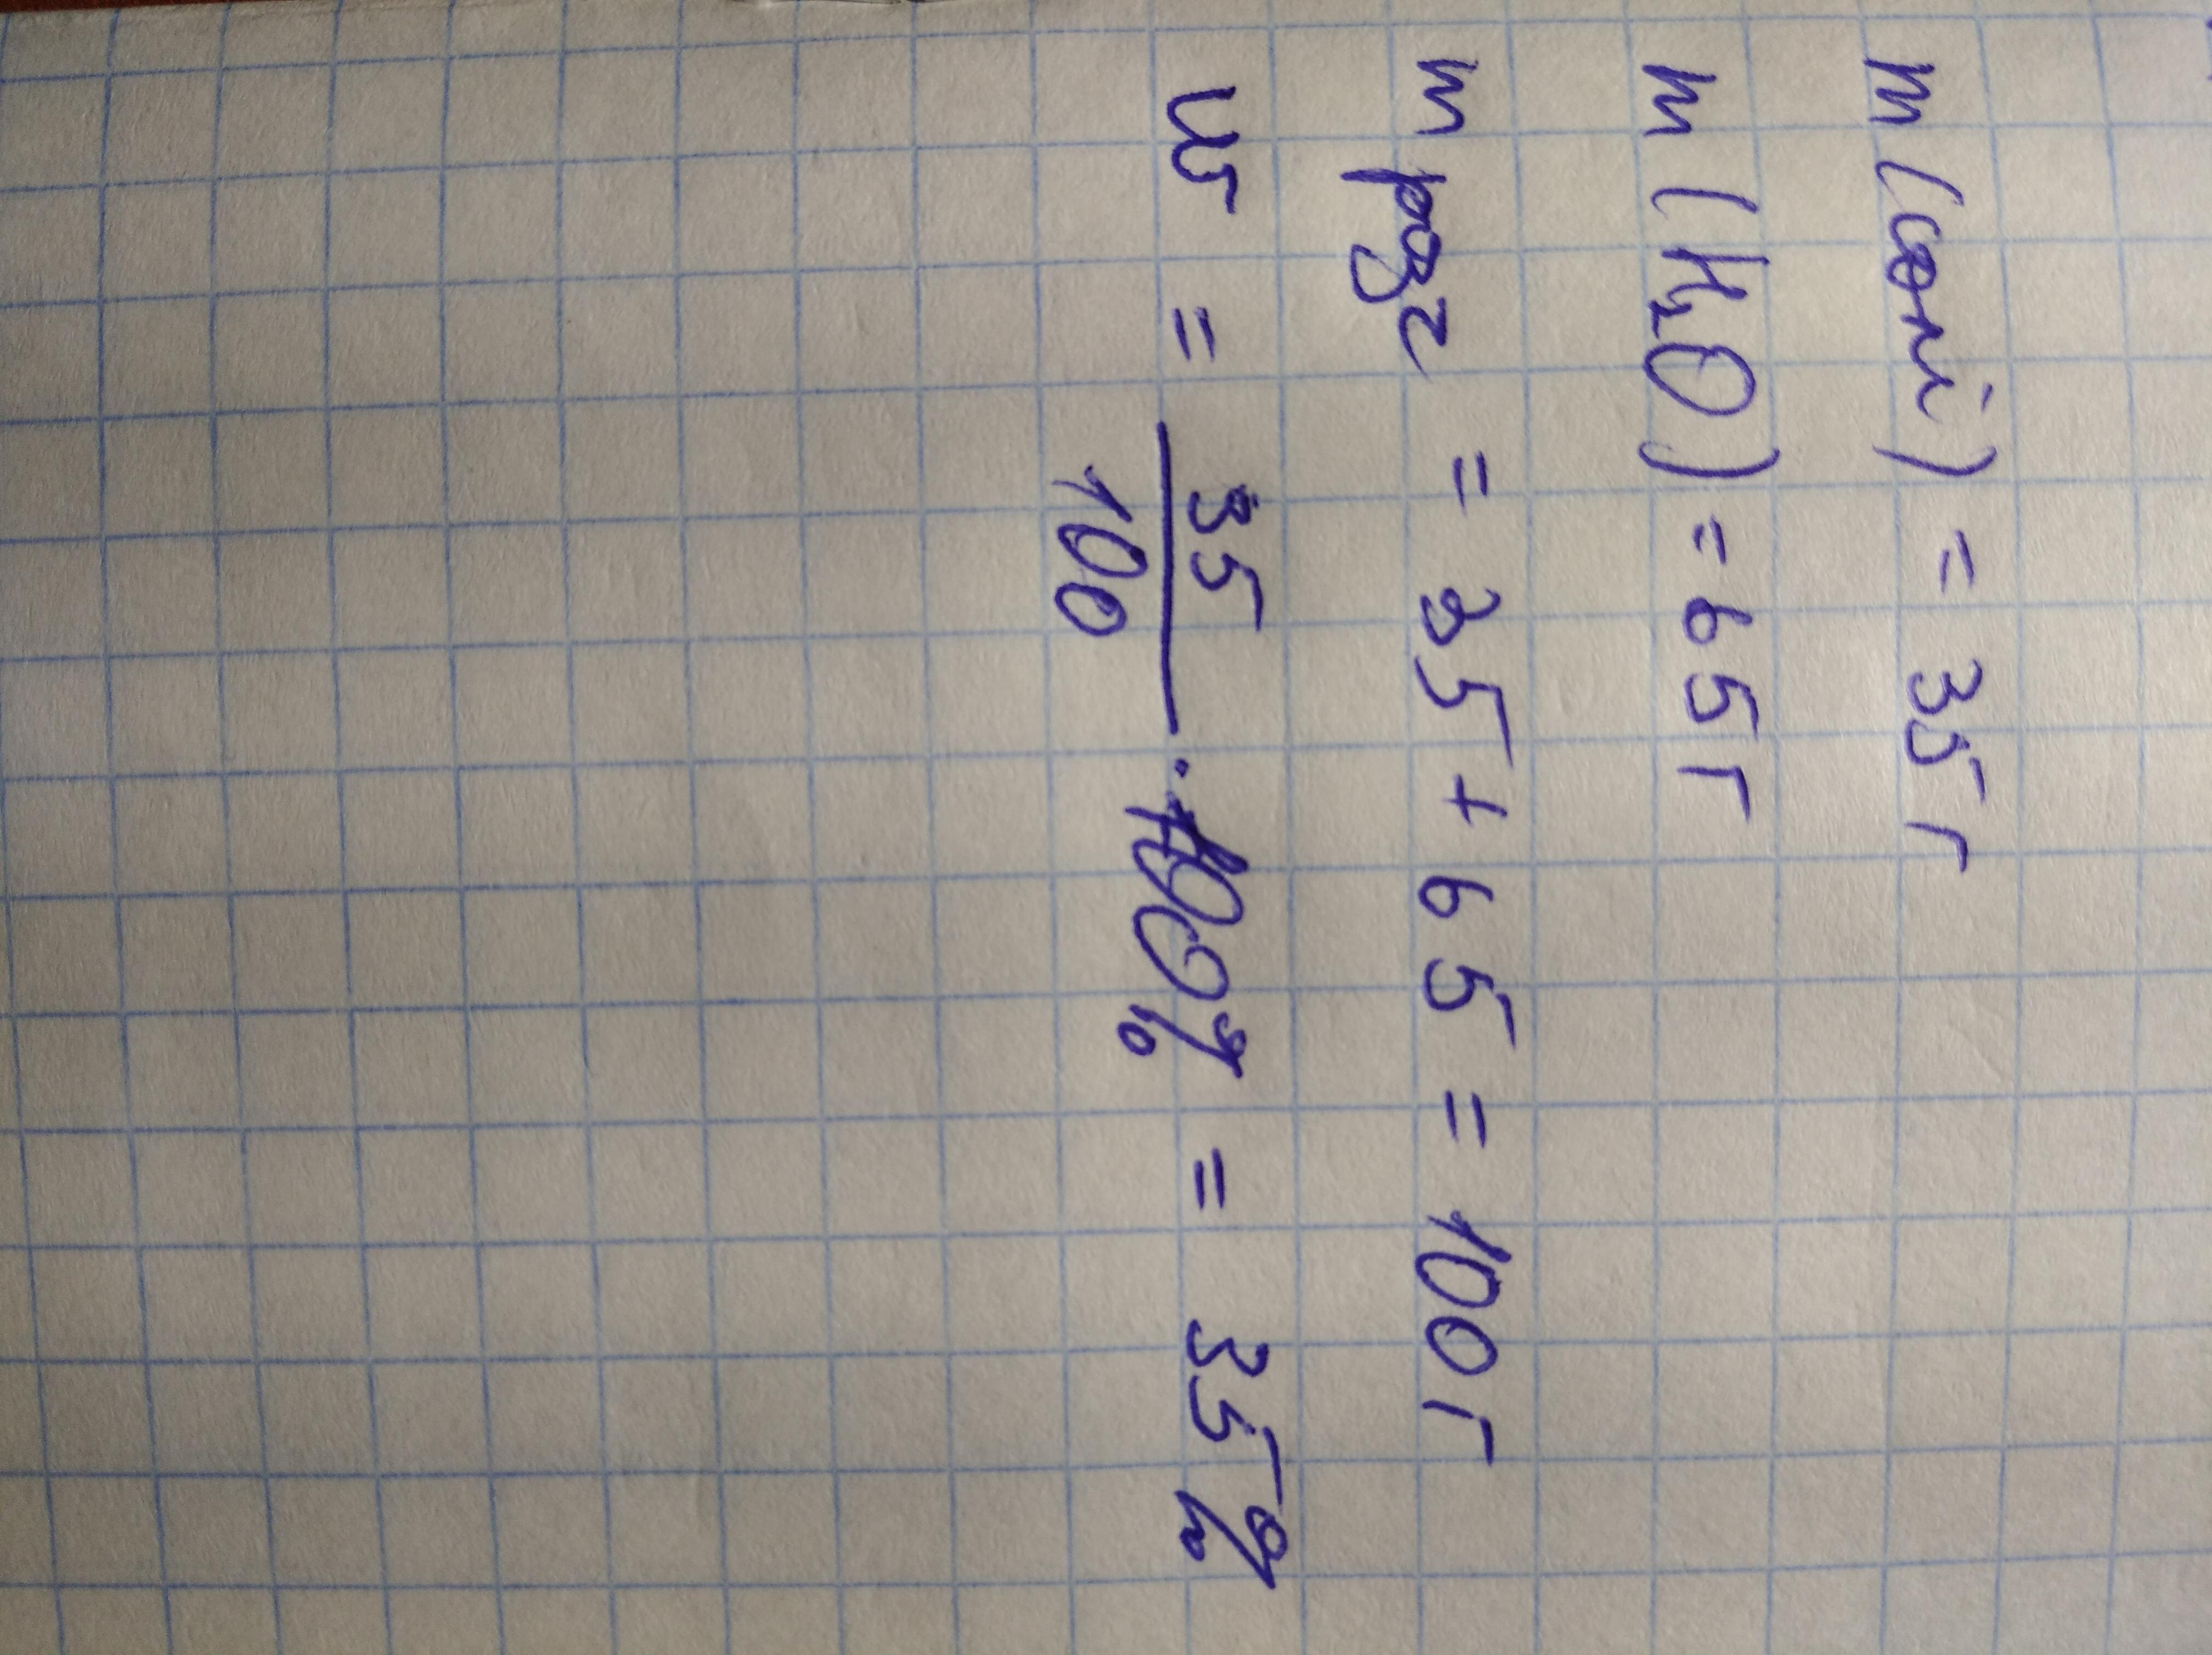 m (солі) = 35 г
m (H₂O) = 65 г
m роз = 35 + 65 = 100 г
w = 35/100 · 100% = 35%